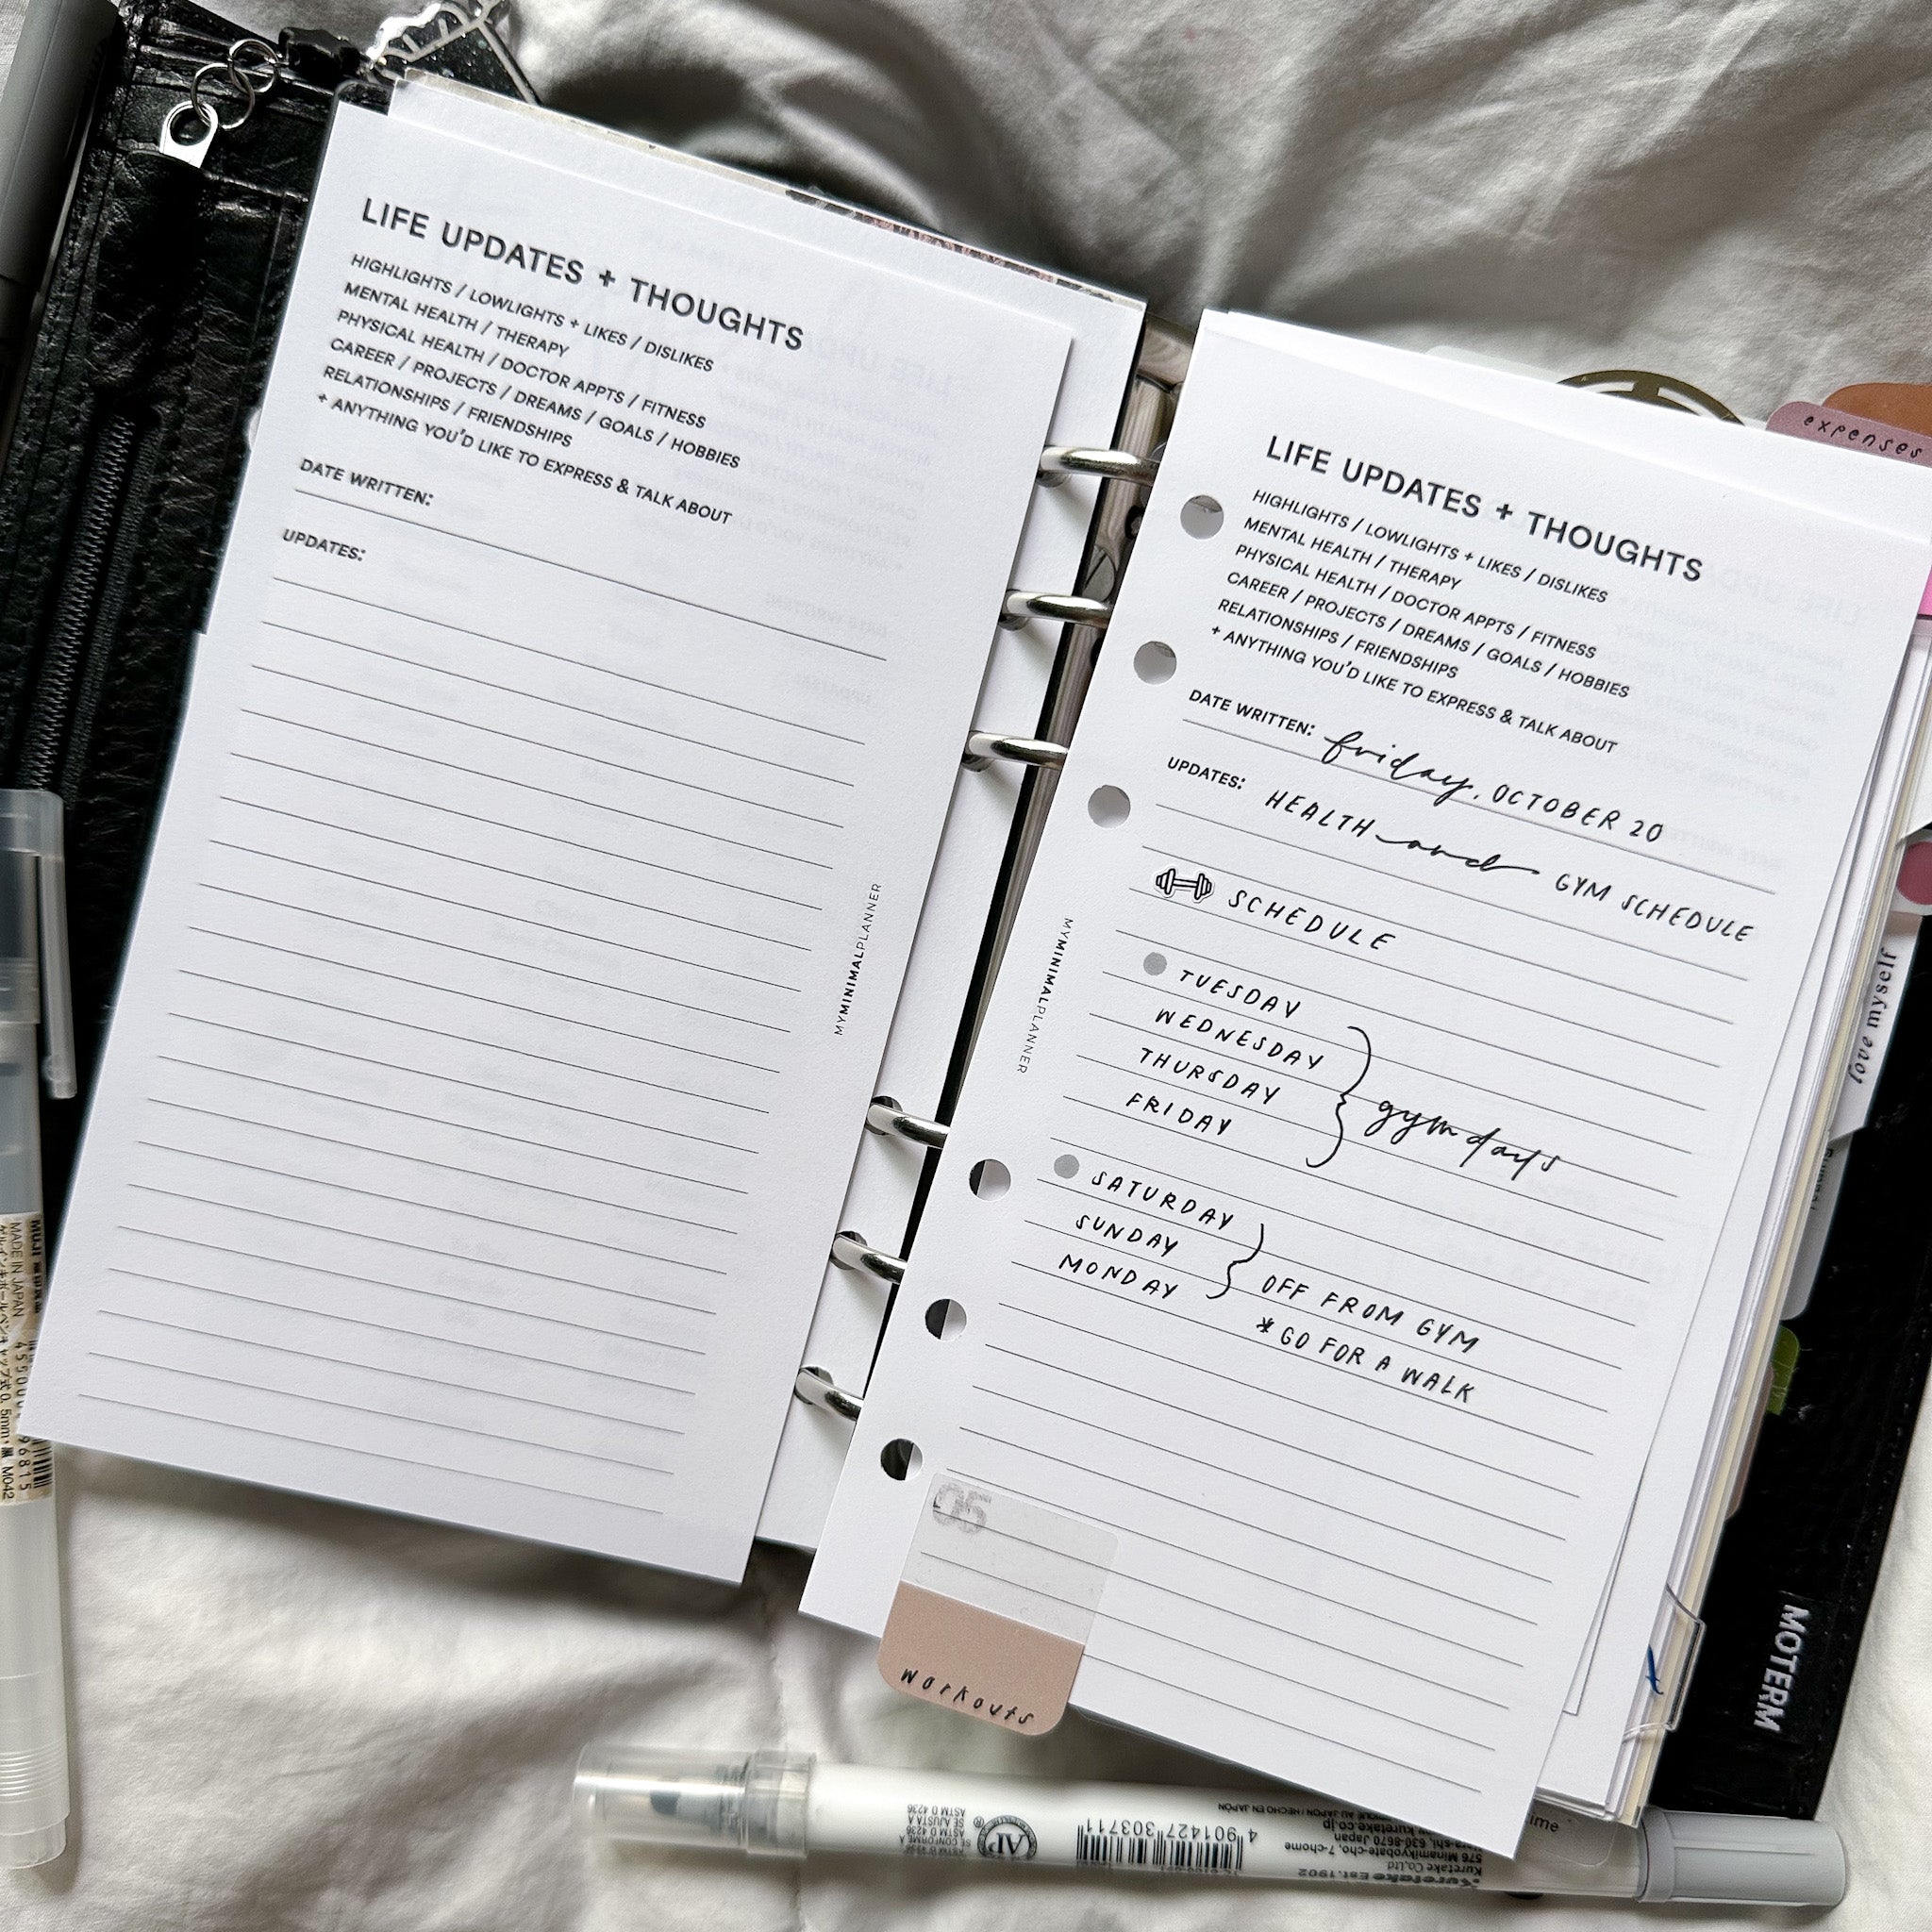 LIFE UPDATES + THOUGHTS
HIGHLIGHTS / LOWLIGHTS + LIKES / DISLIKES
MENTAL HEALTH / THERAPY
PHYSICAL HEALTH / DOCTOR APPTS / FITNESS
CAREER / PROJECTS / DREAMS / GOALS / HOBBIES
RELATIONSHIPS / FRIENDSHIPS
+ ANYTHING YOU'D LIKE TO EXPRESS & TALK ABOUT
DATE WRITTEN:
UPDATES:
MYMINIMALPLANNER
LIFE UPDATES + THOUGHTS
HIGHLIGHTS / LOWLIGHTS + LIKES / DISLIKES
MENTAL HEALTH / THERAPY
PHYSICAL HEALTH / DOCTOR APPTS / FITNESS
CAREER / PROJECTS / DREAMS / GOALS / HOBBIES
RELATIONSHIPS / FRIENDSHIPS
+ ANYTHING YOU'D LIKE TO EXPRESS & TALK ABOUT
DATE WRITTEN: friday, OCTOBER 20
UPDATES: HEALTH and GYM SCHEDULE
SCHEDULE
TUESDAY
WEDNESDAY
THURSDAY
FRIDAY
gym days
SATURDAY
SUNDAY
MONDAY
OFF FROM GYM
* GO FOR A WALK
MYMINIMALPLANNER
05
workouts
expenses
love myself
MOTERM
MUJI
MADE IN JAPAN
0.5mm
M042
4 901427 303711
AP
SE CONFORME A
ASTM D 4236
SE AJUSTA A
ASTM D 4236
Kuretake Est. 1902
Kuretake Co., Ltd.
576 Minamikyobate-cho, 7-chome
Japan
kuretake.co.jp
HECHO EN JAPÓN